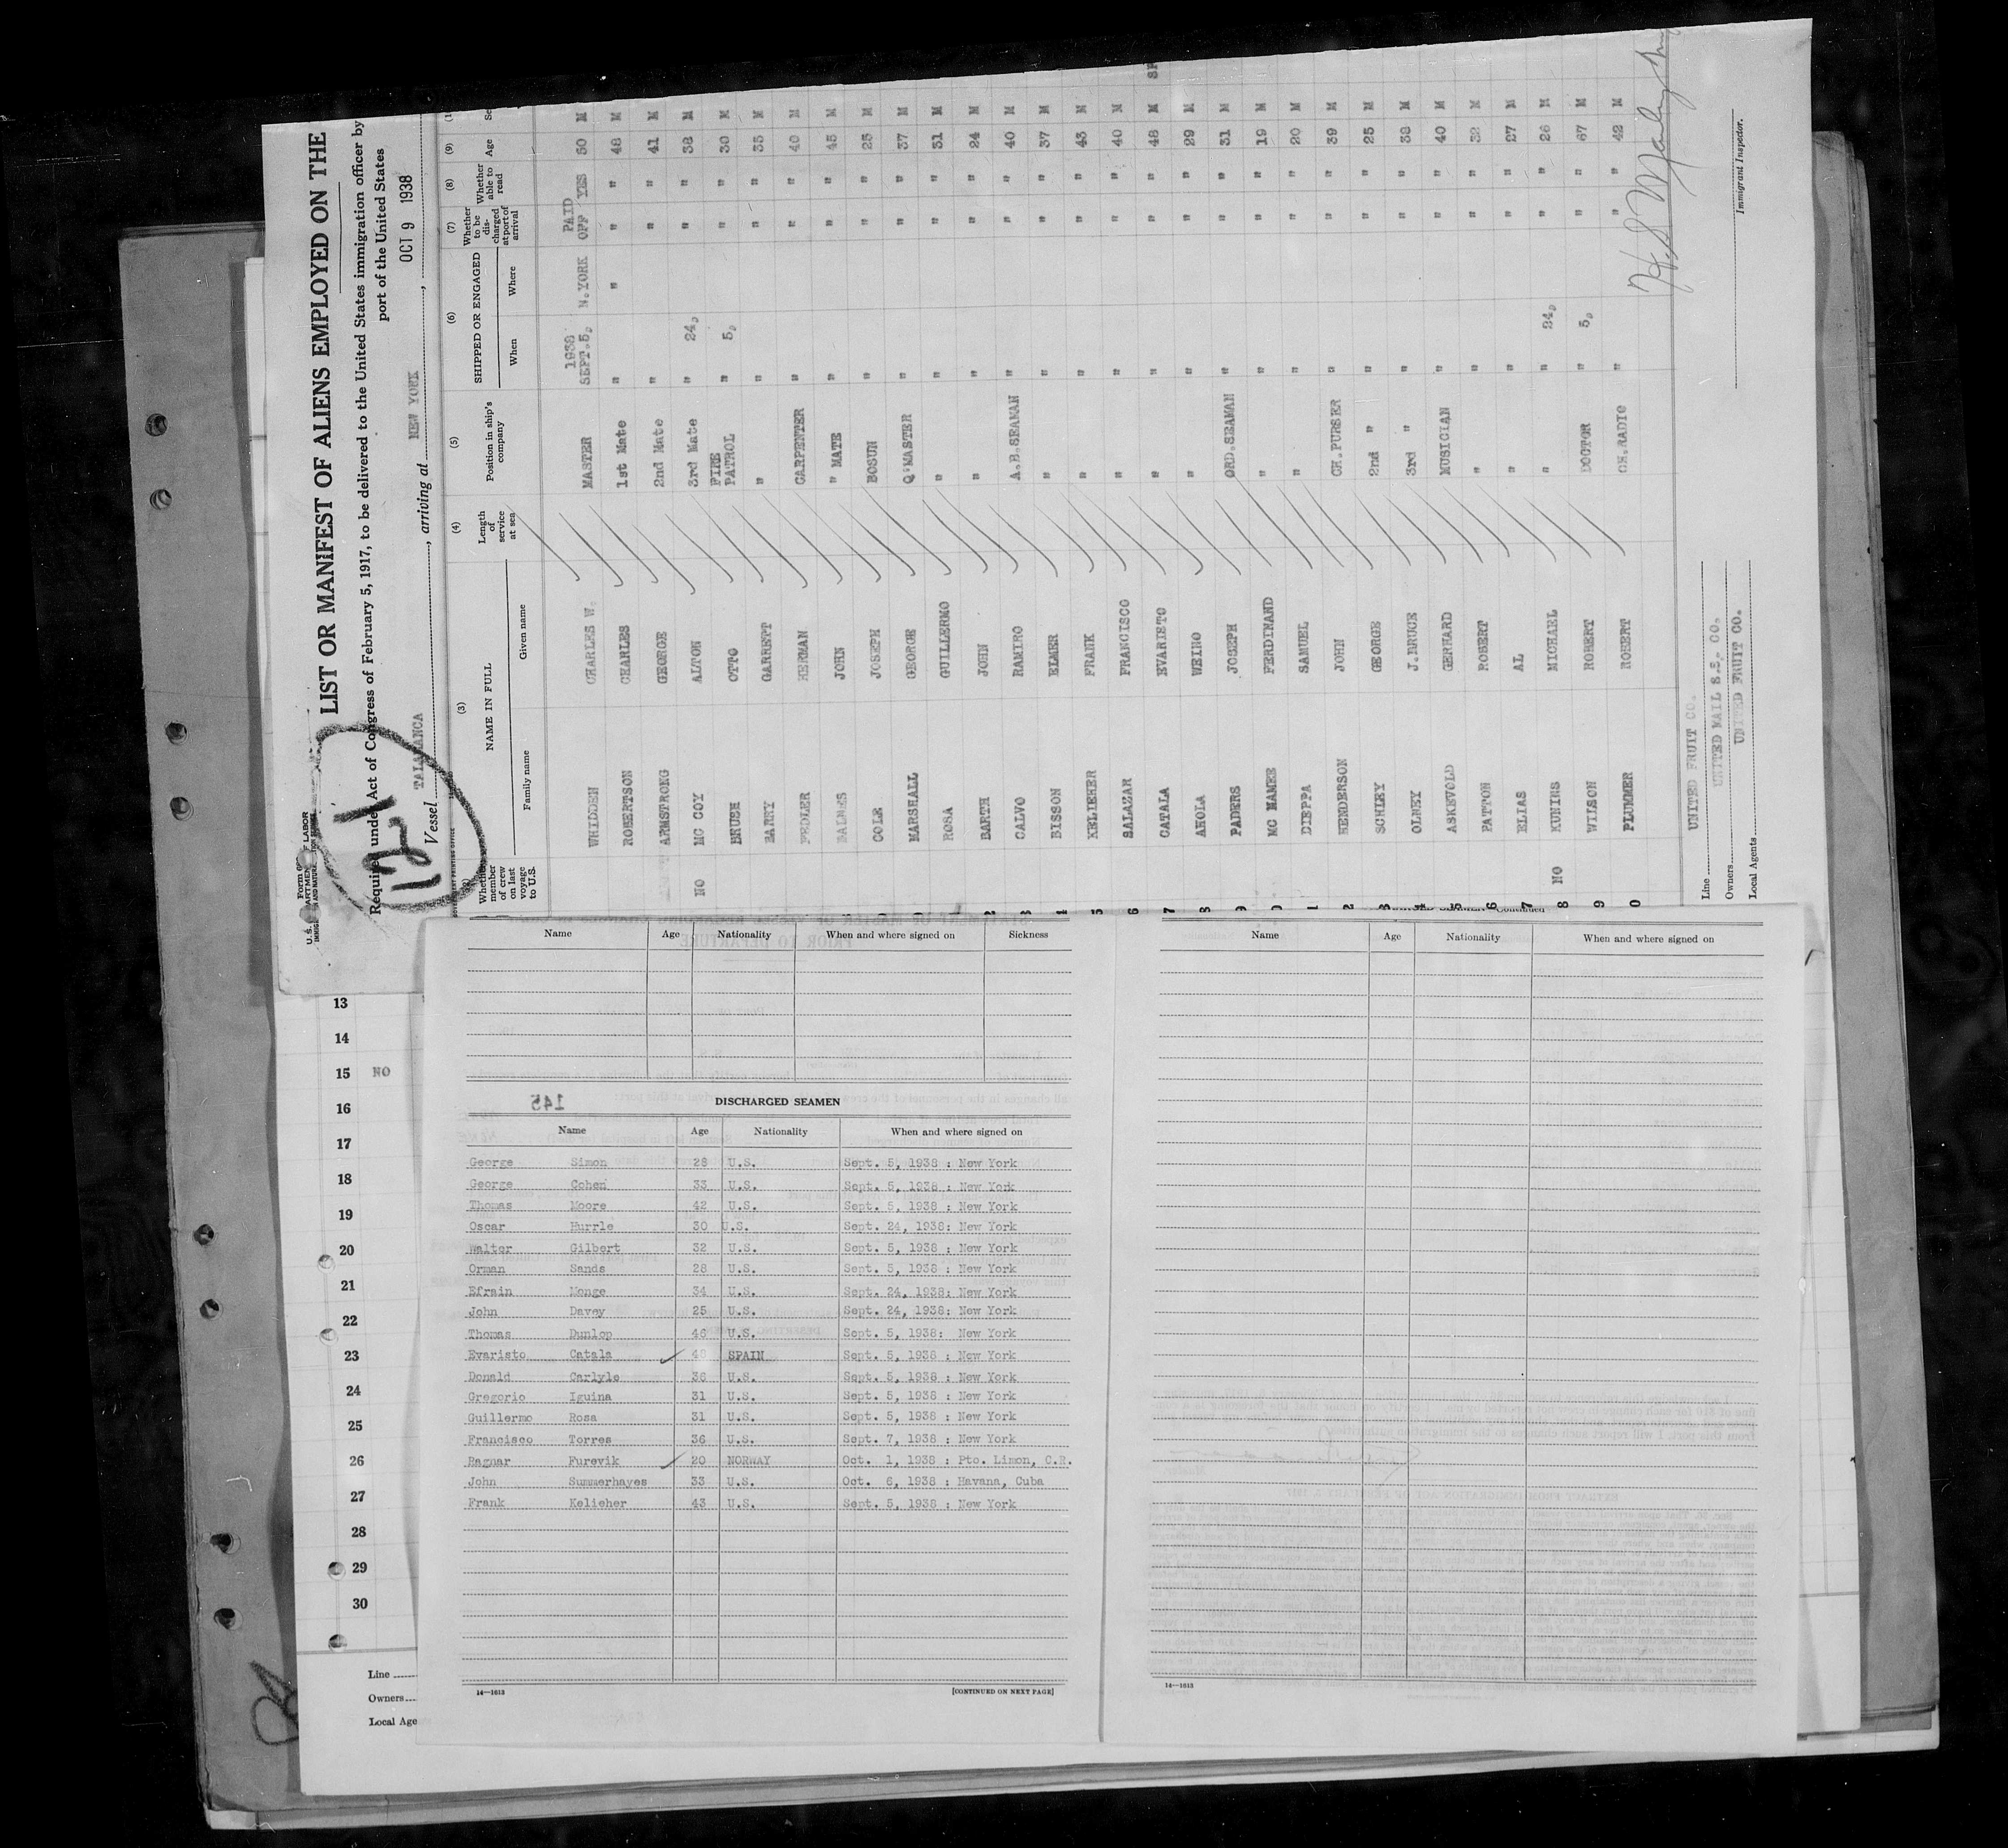 U.S. DEPARTMENT OF LABOR
LIST OR MANIFEST OF ALIENS EMPLOYED ON THE
Required under Act of Congress of February 5, 1917, to be delivered to the United States immigration officer by
port of the United States
Vessel TALAMANCA, arriving at NEW YORK, OCT 9 1938
(3) (4) (5) (6) (7) (8) (9)
Whether member of crew on last voyage to U.S. NAME IN FULL Family name Given name Length of service at sea Position in ship's company SHIPPED OR ENGAGED When Where Whether to be discharged at port of arrival Whether able to read Age
WHIDDEN CHARLES W. MASTER 1938 SEPT.5, N.YORK PAID OFF YES 50 M
ROBERTSON CHARLES 1st Mate " " " " 48 M
ARMSTRONG GEORGE 2nd Mate " " " 41 M
NO MC COY ALTON 3rd Mate " 24, " " 38 M
BRUSH OTTO FIRE PATROL " 5, " " 30 M
BARRY GARRETT " " " " 35 M
FEDLER HERMAN CARPENTER " " " 40 M
JOHN " MATE " " " 45 M
COLE JOSEPH BOSUN " " " 25 M
MARSHALL GEORGE Q'MASTER " " " 37 M
ROSA GUILLERMO " " " " 31 M
BARTH JOHN " " " " 24 M
CALVO RAMIRO A.B.SEAMAN " " " 40 M
BISSON ELMER " " " " 37 M
KELIEHER FRANK " " " " 43 M
SALAZAR FRANCISCO " " " " 40 M
CATALA EVARISTO " " " " 48 M SP
AHOLA WEINO " " " " 29 M
PADERS JOSEPH ORD.SEAMAN " " " 31 M
MC MAMEE FERDINAND " " " " 19 M
DIEPPA SAMUEL " " " " 20 M
HENDERSON JOHN CH.PURSER " " " 39 M
SCHLEY GEORGE 2nd " " " " 25 M
OLNEY J.BRUCE 3rd " " " " 38 M
ASKEVOLD GERHARD MUSICIAN " " " 40 M
PATTON ROBERT " " " " 32 M
ELIAS AL " " " " 27 M
NO KUNIRS MICHAEL " " 24, " " 26 M
WILSON ROBERT DOCTOR " 5, " " 67 M
PLUMMER ROBERT CH.RADIO " " " 42 M
Line UNITED FRUIT CO.
Owners UNITED MAIL S.S. CO.
Local Agents UNITED FRUIT CO.
Immigrant Inspector.
Name Age Nationality When and where signed on Sickness
145
DISCHARGED SEAMEN
Name Age Nationality When and where signed on
George Simon 28 U.S. Sept. 5, 1938 : New York
George Cohen 33 U.S. Sept. 5, 1938 : New York
Thomas Moore 42 U.S. Sept. 5, 1938 : New York
Oscar Hurrle 30 U.S. Sept. 24, 1938: New York
Walter Gilbert 32 U.S. Sept. 5, 1938 : New York
Orman Sands 28 U.S. Sept. 5, 1938 : New York
Efrain Monge 34 U.S. Sept. 24, 1938: New York
John Davey 25 U.S. Sept. 24, 1938: New York
Thomas Dunlop 46 U.S. Sept. 5, 1938: New York
Evaristo Catala 48 SPAIN Sept. 5, 1938 : New York
Donald Carlyle 36 U.S. Sept. 5, 1938 : New York
Gregorio Iguina 31 U.S. Sept. 5, 1938 : New York
Guillermo Rosa 31 U.S. Sept. 5, 1938 : New York
Francisco Torres 36 U.S. Sept. 7, 1938 : New York
Ragnar Furevik 20 NORWAY Oct. 1, 1938 : Pto. Limon, C.R.
John Summerhayes 33 U.S. Oct. 6, 1938 : Havana, Cuba
Frank Kelieher 43 U.S. Sept. 5, 1938 : New York
14—1613
[CONTINUED ON NEXT PAGE]
Name Age Nationality When and where signed on
14—1613
13
14
15 NO
16
17
18
19
20
21
22
23
24
25
26
27
28
29
30
Line
Owners
Local Age